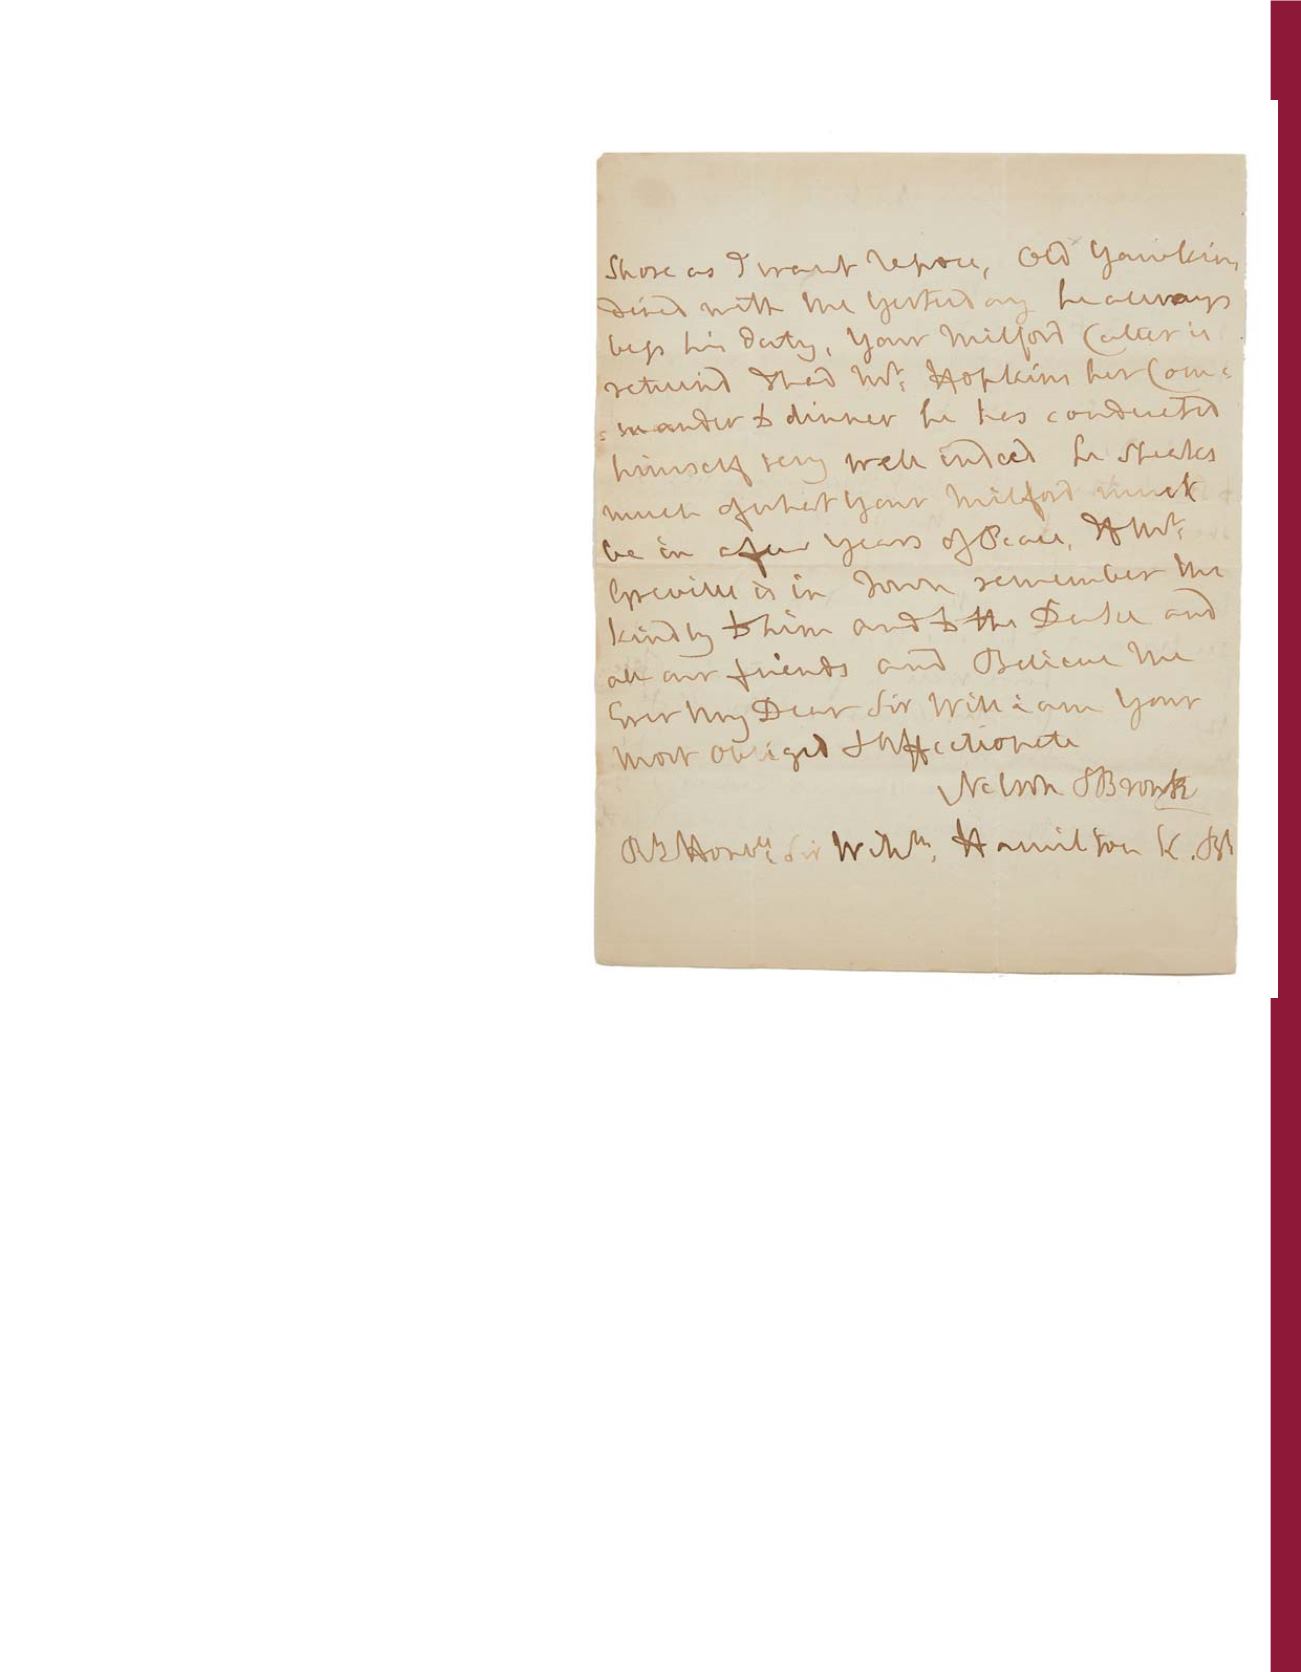 Shore as I want repose, Old Yawkins
dined with me yesterday he always
begs his duty, Your Milford Cutter is
returnd I had Mr: Hopkins her Com=
=mander to dinner he has conducted
himself very well indeed he speaks
much of what your Milford must
be in a few years of Peace, If Mr:
Greville is in Town remember me
kindly to him and to the Duke and
all our friends and Believe me
Ever My Dear Sir William Your
most obliged & Affectionate
Nelson & Bronte
Rt: Honble: Sir Willm: Hamilton K. B: